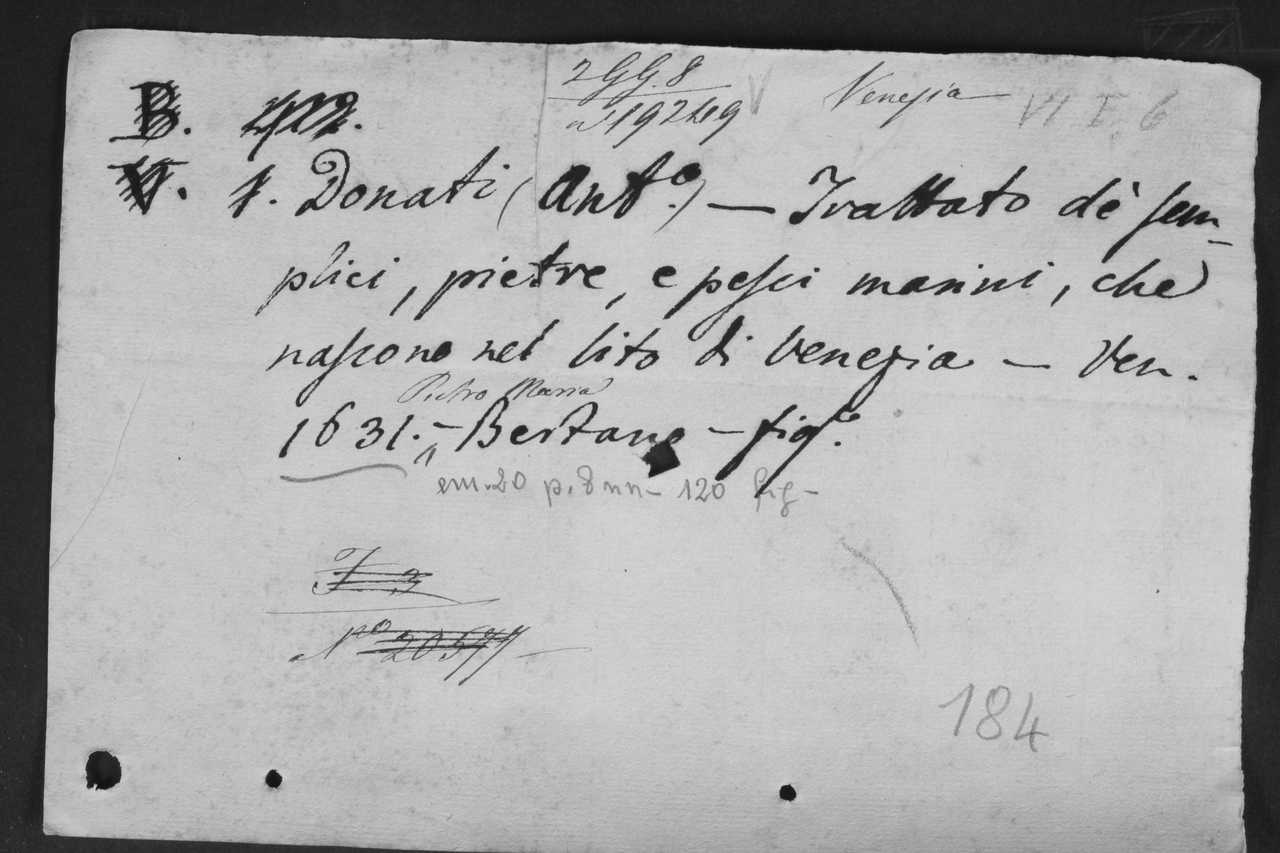 2 GG. 8
n° 19249
V
Venezia
VI I. 6
B.
V. 1. Donati (Ant.º) — Trattato dè sem-
plici, pietre, e pesci marini, che
nascono nel lito di Venezia — Ven.
Pietro Maria
1631. — Bertano — fig.º
cm. 20 p. 8 nn — 120 fig —
I. 3
Nº 20577
184